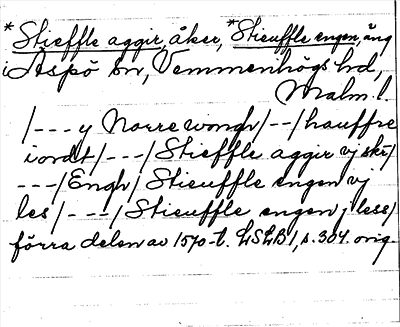 *Stieffle aggir, åker, *Stieuffle engen, äng
i Äspö sn, Vemmenhögs hd,
Malm. l.
/---y Norre wongh/--/hauffre
iordt/---/Stieffle aggir vj skr/
---/Engh/ Stieuffle engen vj
les/---/Stieuffle engen j less/
förra delen av 1570-t. LSLB 1, s. 304. orig.